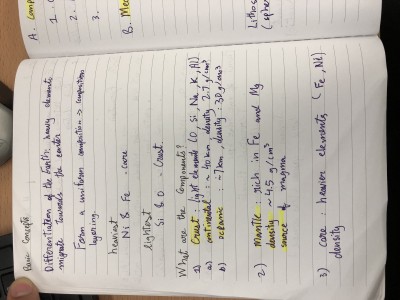 Basic Concepts
Differentiation of the Earth: heavy elements
migrate towards the center
Form a uniform composition → composition
layering.
heaviest
Ni & Fe - core
lightest
Si & O - Crust.
What are the Components?
1) Crust: light elements (O, Si, Na, K, Al)
a) continental: ~ 40 km density 2.7 g/cm³
b) oceanic: ~7km, density: 3.0 g/cm³
2) Mantle: rich in Fe and Mg
density ~ 4.5 g/cm³
source of magma
3) core: heavier elements (Fe, Ni)
density
A.
1.
2.
3.
B.
Lithos
(sphe